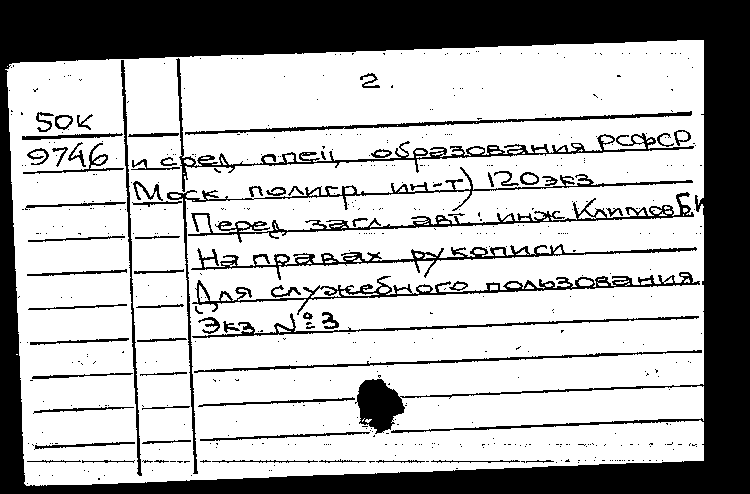 2.
50К
9746 и сред. спец. образования РСФСР.
Моск. полигр. ин-т) 120 экз.
Перед загл. авт.: инж. Климов Б.И
На правах рукописи.
Для служебного пользования.
Экз. №3.